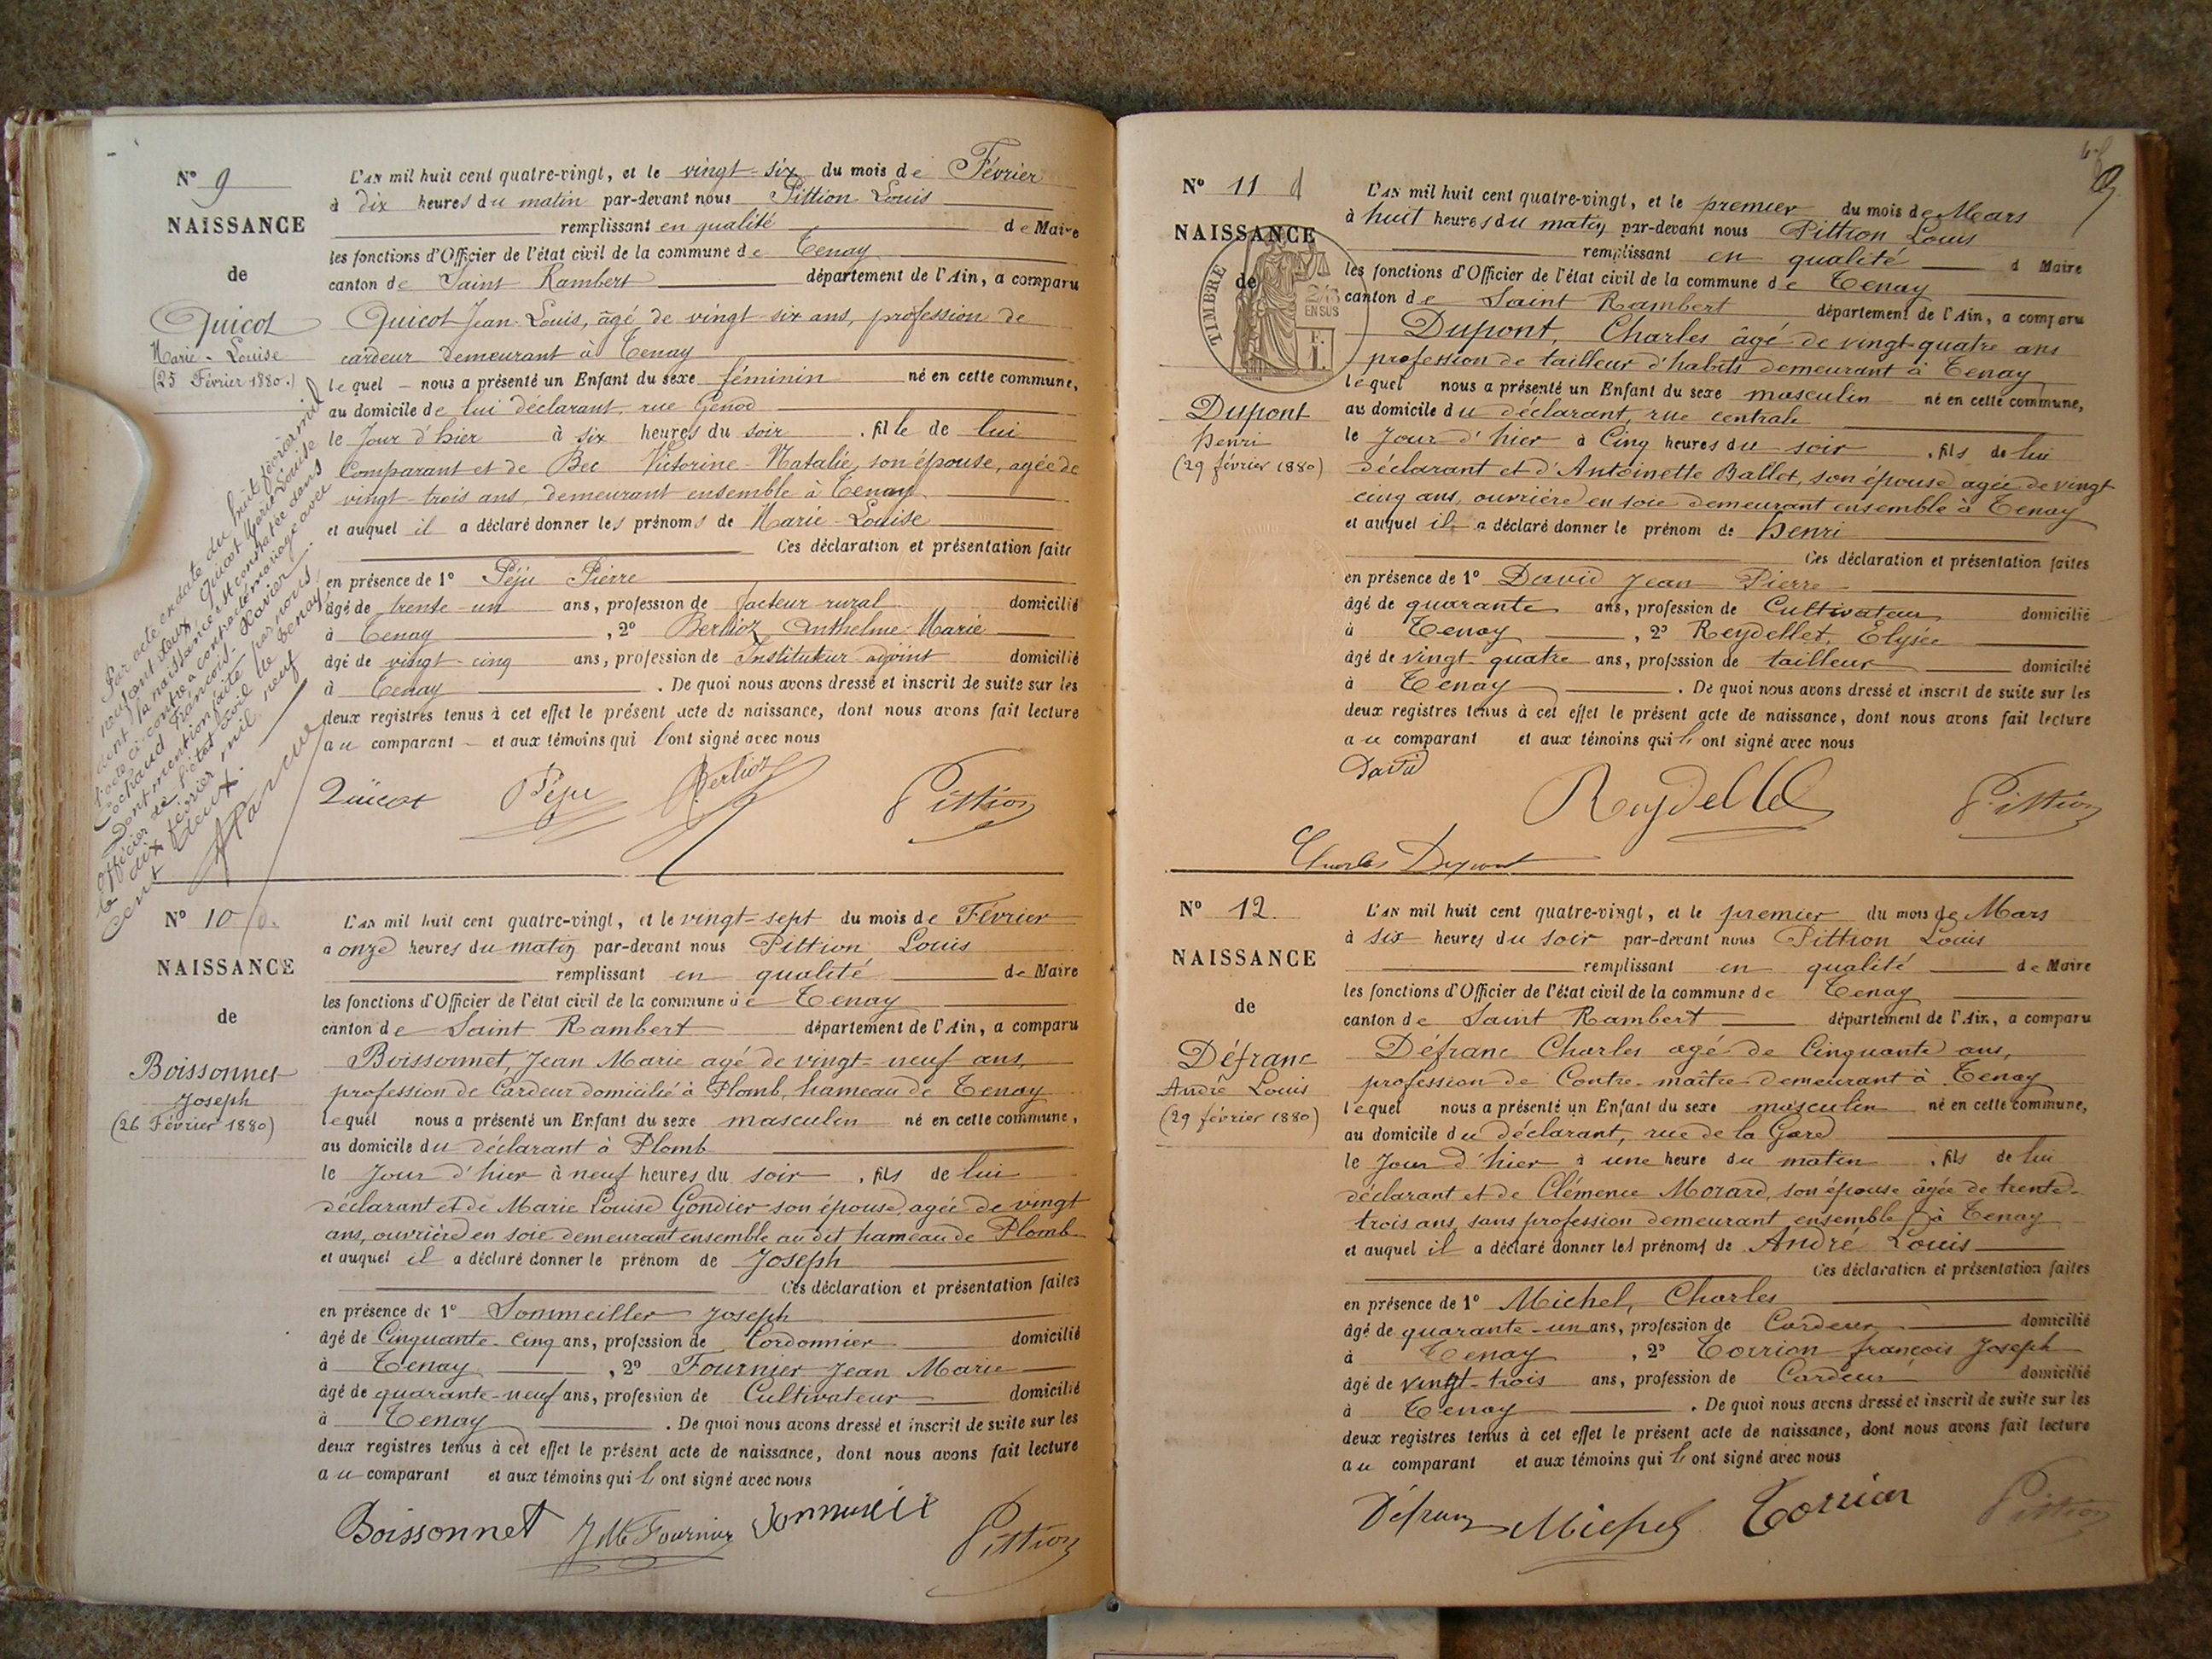 N° 9
NAISSANCE
de
Quicot
Marie-Louise
(25 Février 1880.)
Par acte en date du huit février mil
neuf cent deux, Quicot Marie Louise
dont la naissance est constatée dans
l'acte ci-contre a contracté mariage avec
Cochaud François-Xavier.
Dont mention faite par nous
officier de l'état civil de Tenay
le dix février mil neuf
cent deux.
L'AN mil huit cent quatre-vingt, et le vingt-six du mois de Février
à dix heures du matin par-devant nous Pittion Louis
remplissant en qualité de Maire
les fonctions d'Officier de l'état civil de la commune de Tenay
canton de Saint Rambert département de l'Ain, a comparu
Quicot Jean-Louis, âgé de vingt-six ans, profession de
cardeur demeurant à Tenay
lequel nous a présenté un Enfant du sexe féminin né en cette commune,
au domicile de lui déclarant, rue Genod
le Jour d'hier à six heures du soir, fille de lui
comparant et de Bec Victorine-Natalie, son épouse, agée de
vingt-trois ans, demeurant ensemble à Tenay
et auquel il a déclaré donner les prénoms de Marie-Louise
Ces déclaration et présentation faites
en présence de 1° Péju Pierre
âgé de trente-un ans, profession de facteur rural domicilié
à Tenay, 2° Berlioz Anthelme-Marie
âgé de vingt-cinq ans, profession de Instituteur-adjoint domicilié
à Tenay. De quoi nous avons dressé et inscrit de suite sur les
deux registres tenus à cet effet le présent acte de naissance, dont nous avons fait lecture
au comparant et aux témoins qui l'ont signé avec nous
Quicot Péju Berlioz Pittion
N° 10
NAISSANCE
de
Boissonnet
Joseph
(26 Février 1880)
L'AN mil huit cent quatre-vingt, et le vingt-sept du mois de Février
à onze heures du matin par-devant nous Pittion Louis
remplissant en qualité de Maire
les fonctions d'Officier de l'état civil de la commune de Tenay
canton de Saint Rambert département de l'Ain, a comparu
Boissonnet, Jean Marie agé de vingt-neuf ans,
profession de Cardeur domicilié à Plomb, hameau de Tenay
lequel nous a présenté un Enfant du sexe masculin né en cette commune,
au domicile du déclarant à Plomb
le Jour d'hier à neuf heures du soir, fils de lui
déclarant et de Marie Louise Gondier son épouse, agée de vingt
ans, ouvrière en soie demeurant ensemble au dit hameau de Plomb
et auquel il a déclaré donner le prénom de Joseph
Ces déclaration et présentation faites
en présence de 1° Sommeiller Joseph
âgé de Cinquante-Cinq ans, profession de Cordonnier domicilié
à Tenay, 2° Fournier Jean Marie
âgé de quarante-neuf ans, profession de Cultivateur domicilié
à Tenay. De quoi nous avons dressé et inscrit de suite sur les
deux registres tenus à cet effet le présent acte de naissance, dont nous avons fait lecture
au comparant et aux témoins qui l'ont signé avec nous
Boissonnet JM Fournier Pittion
9
N° 11
NAISSANCE
de
TIMBRE
2/10 EN SUS
Dupont
Henri
(29 février 1880)
L'AN mil huit cent quatre-vingt, et le premier du mois de Mars
à huit heures du matin par-devant nous Pittion Louis
remplissant en qualité d Maire
les fonctions d'Officier de l'état civil de la commune de Tenay
canton de Saint Rambert département de l'Ain, a comparu
Dupont, Charles âgé de vingt-quatre ans
profession de tailleur d'habits demeurant à Tenay
lequel nous a présenté un Enfant du sexe masculin né en cette commune,
au domicile du déclarant, rue centrale
le Jour d'hier à Cinq heures du soir, fils de lui
déclarant et d'Antoinette Ballet, son épouse agée de vingt
cinq ans, ouvrière en soie demeurant ensemble à Tenay
et auquel il a déclaré donner le prénom de Henri
Ces déclaration et présentation faites
en présence de 1° David Jean Pierre
âgé de quarante ans, profession de Cultivateur domicilié
à Tenay, 2° Reydellet, Elysée
âgé de vingt-quatre ans, profession de tailleur domicilié
à Tenay. De quoi nous avons dressé et inscrit de suite sur les
deux registres tenus à cet effet le présent acte de naissance, dont nous avons fait lecture
au comparant et aux témoins qui l'ont signé avec nous
David
Reydellet Pittion
Charles Dupont
N° 12.
NAISSANCE
de
Défranc
André Louis
(29 février 1880)
L'AN mil huit cent quatre-vingt, et le premier du mois de Mars
à six heures du soir par-devant nous Pittion Louis
remplissant en qualité de Maire
les fonctions d'Officier de l'état civil de la commune de Tenay
canton de Saint Rambert département de l'Ain, a comparu
Défranc Charles agé de Cinquante ans,
profession de Contre-maître demeurant à Tenay
lequel nous a présenté un Enfant du sexe masculin né en cette commune,
au domicile du déclarant, rue de la Gare
le Jour d'hier à une heure du matin, fils de lui
déclarant et de Clémence Morard, son épouse âgée de trente-
trois ans, sans profession demeurant ensemble à Tenay
et auquel il a déclaré donner les prénoms de André Louis
Ces déclaration et présentation faites
en présence de 1° Michel, Charles
âgé de quarante-un ans, profession de Cardeur domicilié
à Tenay, 2° Torrion françois Joseph
âgé de vingt-trois ans, profession de Cardeur domicilié
à Tenay. De quoi nous avons dressé et inscrit de suite sur les
deux registres tenus à cet effet le présent acte de naissance, dont nous avons fait lecture
au comparant et aux témoins qui l'ont signé avec nous
Défranc Michel Torrion Pittion